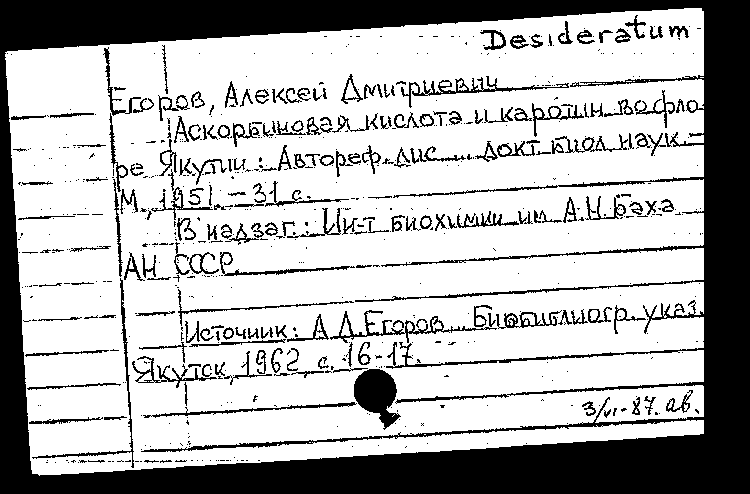 Desideratum
Егоров, Алексей Дмитриевич
Аскорбиновая кислота и каротин во фло-
ре Якутии : Автореф. дис ... докт биол наук. –
М., 1951. – 31 с.
В надзаг. : Ин-т биохимии им А.Н. Баха
АН СССР.
Источник : А.Д. Егоров. Биобиблиогр. указ.
Якутск, 1962, с. 16-17.
3/VI-87. ав.